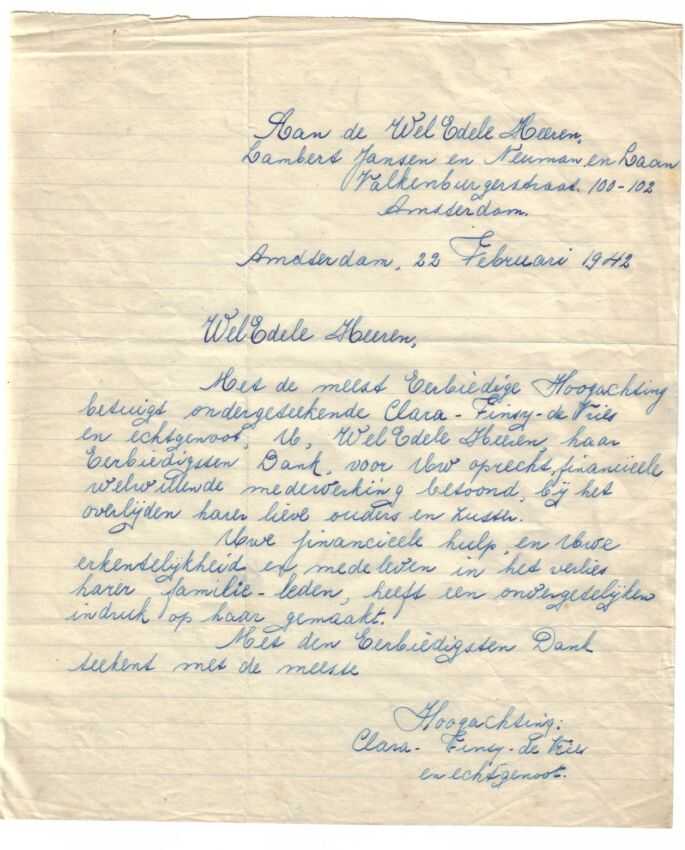 Aan de WelEdele Heeren,
Lambert Jansen en Neuman en Laan
Valkenburgerstraat. 100-102
Amsterdam.
Amsterdam, 22 Februari 1942
WelEdele Heeren,
Met de meest Eerbiedige Hoogachting
betuigt ondergeteekende Clara-Finsy-de Vries
en echtgenoot, U, WelEdele Heeren, haar
Eerbiedigsten Dank, voor Uw oprecht, financieele
welwillende medewerking betoond, bij het
overlijden harer lieve ouders en zuster.
Uwe financieele hulp, en Uwe
erkentelijkheid en medeleven in het verlies
harer familie-leden, heeft een onvergetelijken
indruk op haar gemaakt.
Met den Eerbiedigsten Dank
teekent met de meeste
Hoogachting:
Clara-Finsy-de Vries
en echtgenoot.